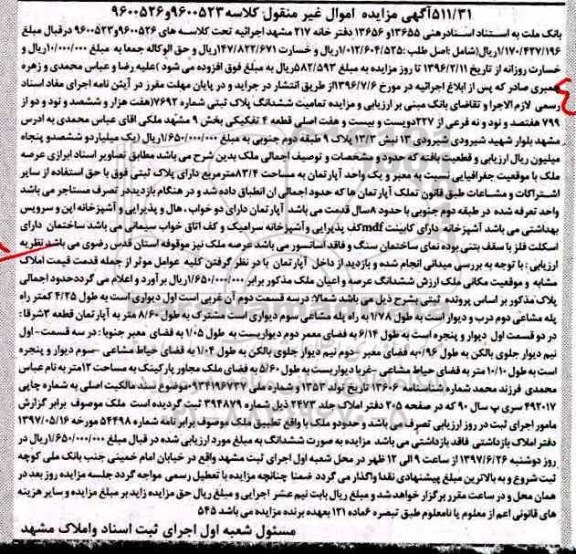 ۵۱۱/۳۱آگهی مزایده اموال غیر منقول کلاسه۹۶۰۰۵۲۳و۹۶۰۰۵۲۶
بانک ملت به استناد اسنادرهنی ۱۳۶۵۵و ۱۳۶۵۶ دفتر خانه ۲۱۷ مشهد اجرائیه تحت کلاسه های ۹۶۰۰۵۲۶و۹۶۰۰۵۲۳ درقبال مبلغ
۱/۱۷۰/۴۲۷/۱۹۶ریال(شامل :اصل طلب :۱/۰۱۲/۶۰۴/۵۲۵ریال و خسارت ۱۴۷/۸۲۲/۶۷۱ریال و حق الوکاله جمعا به مبلغ ۱۰/۰۰۰/۰۰۰ریال و
خسارت روزانه از تاریخ ۱۳۹۶/۲/۱۱ تا روز مزایده به مبلغ ۵۸۲/۵۹۳ریال به مبلغ فوق افزوده می شود )علیه رضا و عباس محمدی و زهره
قمبری صادر که پس از ابلاغ اجرائیه در مورخ ۱۳۹۶/۷/۶از طریق انتشار در جراید و در پایان مهلت مقرر در آیشن نامه اجرای مفاد اسناد
رسمی لازم الاجرا و تقاضای بانک مبنی بر ارزیابی و مزایده تمامیت ششدانگ پلاک ثبتی شماره ۷۶۹۲(هفت هزار و ششصد و نود و دو از
۷۹۹ هفتصد و نود و نه فرعی از ۲۲۷دویست و بیست و هفت اصلی قطعه ۴ تفکیکی بخش ۹ مشهد ملکی آقای عباس محمدی به ادرس
مشهد بلوار شهید شیرودی شیرودی ۱۳ نبش ۱۳/۳ پلاک ۹ طبقه دوم جنوبی به مبلغ ۱/۶۵۰/۰۰۰/۰۰۰ریال (یک میلیاردو ششصدو پنجاه
میلیون ریال ارزیابی و قطعیت یافته که حدود و مشخصات و توصیف اجمالی ملک بدین شرح می باشد مطابق تصاویر اسناد ابرازی عرصه
ملک با موقعیت جغرافیایی نسبت به معبر و یک واحد آپارتمان به مساحت ۸۳/۴مترمربع دارای پلاک ثبتی فوق با حق استفاده از سایر
اشتراکات و مشاعات طبق قانون تملک آپارتمان ها که حدود اجمالی ان انطباق داده شد و در هنگام بازدیددر تصرف مستاجر می باشد
واحد تعرفه شده در طبقه دوم جنوبی با حدود ۸سال قدمت می باشد آپارتمان دارای دو خواب ، هال و پذیرایی و آشپزخانه اپن و سرویس
بهداشتی می باشد آشپزخانه دارای کابینت mdfکف پذیرایی وآشپزخانه سرامیک و کف اتاق خواب سیمانی می باشد ساختمان دارای
اسکلت فلز با سقف بتنی بوده نمای ساختمان سنگ و فاقد آسانسور می باشد عرصه ملک نیز موقوفه استان قدس رضوی می باشد نظریه
ارزیابی : با توجه به بررسی میدانی انجام شده و بازدید از داخل آپارتمان با در نظر گرفتن کلیه عوامل موثر از جمله قدمت قیمت املاک
مشابه و موقعیت مکانی ملک ارزش ششدانگ عرصه و اعیان ملک مذکور برابر ۱/۶۵۰/۰۰۰/۰۰۰ریال برآورد و اعلام می گرددحدود اجمالی
پلاک مذکور بر اساس پرونده ثبتی بشرح ذیل می باشد شمالا: درسه قسمت دوم آن غربی است اول دیواری است به طول ۴/۲۵ کمتر راه
پله مشاعی دوم درب و دیوار است به طول ۱/۷۸ به راه پله مشاعی سوم دیواری است مشترک به طول ۸/۶۰ متر به آپارتمان قطعه ۳شرقا:
در دو قسمت اول دیوار و پنجره است به طول ۶/۱۴ به فضای معمر دوم دیواریست به طول ۱/۰۵ به فضای معبر جنوبا : در سه قسمت-اول
نیم دیوار جلوی بالکن به طول ۰/۹۶به فضای معبر -دوم نیم دیوار جلوی بالکن به طول ۱/۰۲ به فضای حیاط مشاعی -سوم دیوار و پنجره
است به طول ۱۰/۱۰ متر به فضای حیاط مشاعی -غربا دیواریست به طول ۵/۶۰ به فضای ملک مجاور پارکینک به مساحت ۱۲متر به نام عباس
محمدی فرزند محمد شماره شناسنامه ۱۳۶۰۶ تاریخ تولد ۱۳۵۳ و شماره ملی ۰۹۳۴۱۹۶۷۳۷موضوع سند مالکیت اصلی به شماره چاپی
۴۹۲۰۱۷ سری پ سال ۹۰ که در صفحه ۲۰۵ دفتر املاک جلد ۲۴۷۳ ذیل شماره ۳۹۴۸۷۹ ثبت گردیده است ملک موصوف برابر گزارش
مامور اجرای ثبت در روز ارزیابی تصرف می باشد و حدودو ملک با واقع تطبیق ملک موصوف برابر نامه شماره ۵۴۴۹۸ مورخه ۱۳۹۷/۰۵/۱۶
دفتر املاک بازداشتی فاقد بازداشتی می باشد مزایده به صورت ششدانگ به مبلغ مورد ارزیابی شده در قبال مبلغ ۱/۶۵۰/۰۰۰/۰۰۰ریال در
روز دوشنبه ۱۳۹۷/۶/۲۶ از ساعت ۹ الی ۱۲ ظهر در محل شعبه اول اجرای ثبت مشهد واقع در خیابان امام خمینی جنب بانک ملی کوچه
ثبت شروع و به بالاترین مبلغ پیشنهادی نقدا واگذار می گردد ضمنا چنانچه مزایده با تعطیل رسمی مواجه گردد جلسه مزایده روز بعد در
همان محل و در ساعت مقرر برگزار خواهد شد و مبلغ ریال بابت نیم عشر اجرایی و مبلغ ریال حق مزایده زاید بر مبلغ مزایده و سایر هزینه
های قانونی اعم از معلوم یا نامعلوم طبق تبصره ۶ماده ۱۲۱ بعهده برنده مزایده می باشد ۵۴۵
مسئول شعبه اول اجرای ثبت اسناد واملاک مشهد